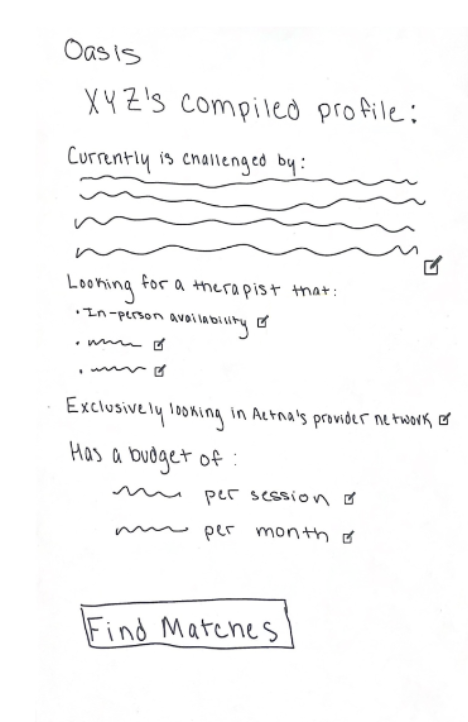 Oasis
XYZ's compiled profile:
Currently is challenged by:
Looking for a therapist that:
• In-person availability
Exclusively looking in Aetna's provider network
Has a budget of:
per session
per month
Find Matches